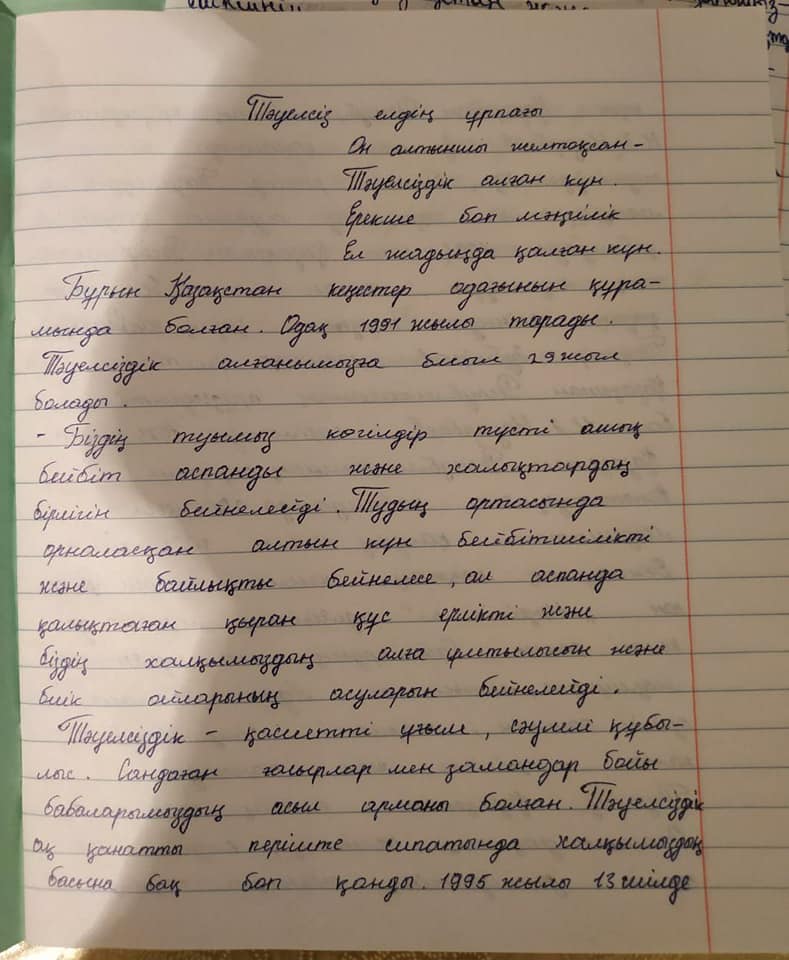 Тәуелсіз елдің ұрпағы
Он алтыншы желтоқсан-
Тәуелсіздік алған күн.
Ерекше боп мәңгілік
Ел жадыңда қалған күн.
Бұрын Қазақстан кеңестер одағынын құра-
мында болған. Одақ 1991 жылы тарады.
Тәуелсіздік алғанымызға биыл 29 жыл
болады.
- Біздің туымыз көгілдір түсті ашық
бейбіт аспанды және халықтардың
бірлігін бейнелейді. Тудың ортасында
орналасқан алтын күн бейбітшілікті
және байлықты бейнелесе, ал аспанда
қалықтаған қыран құс ерлікті және
біздің халқымыздың алға ұмтылысын және
биік ойларының асуларын бейнелейді.
Тәуелсіздік - қасиетті ұғым, сәулелі құбы-
лыс. Сандаған ғасырлар мен замандар бойы
бабаларымыздың асыл арманы болған. Тәуелсіздік
ақ қанатты періште сипатында халқымыздың
басына бақ боп қонды. 1995 жылы 13 шілде